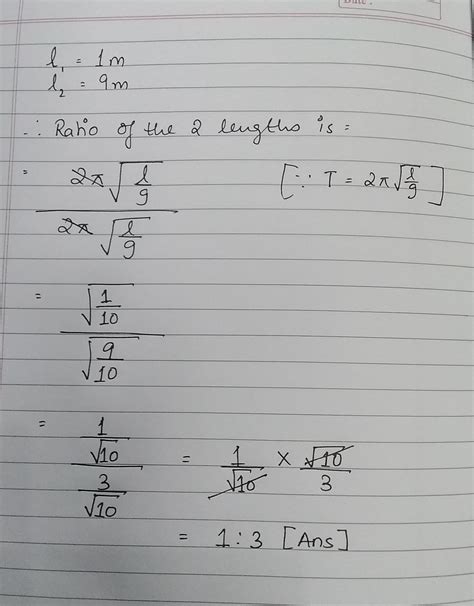 Date :
l₁ = 1m
l₂ = 9m
∴ Ratio of the 2 lengths is =
= 2π√(l/g) / 2π√(l/g) [∵ T = 2π√(l/g)]
= √(1/10) / √(9/10)
= (1/√10) / (3/√10) = 1/√10 × √10/3
= 1 : 3 [Ans]